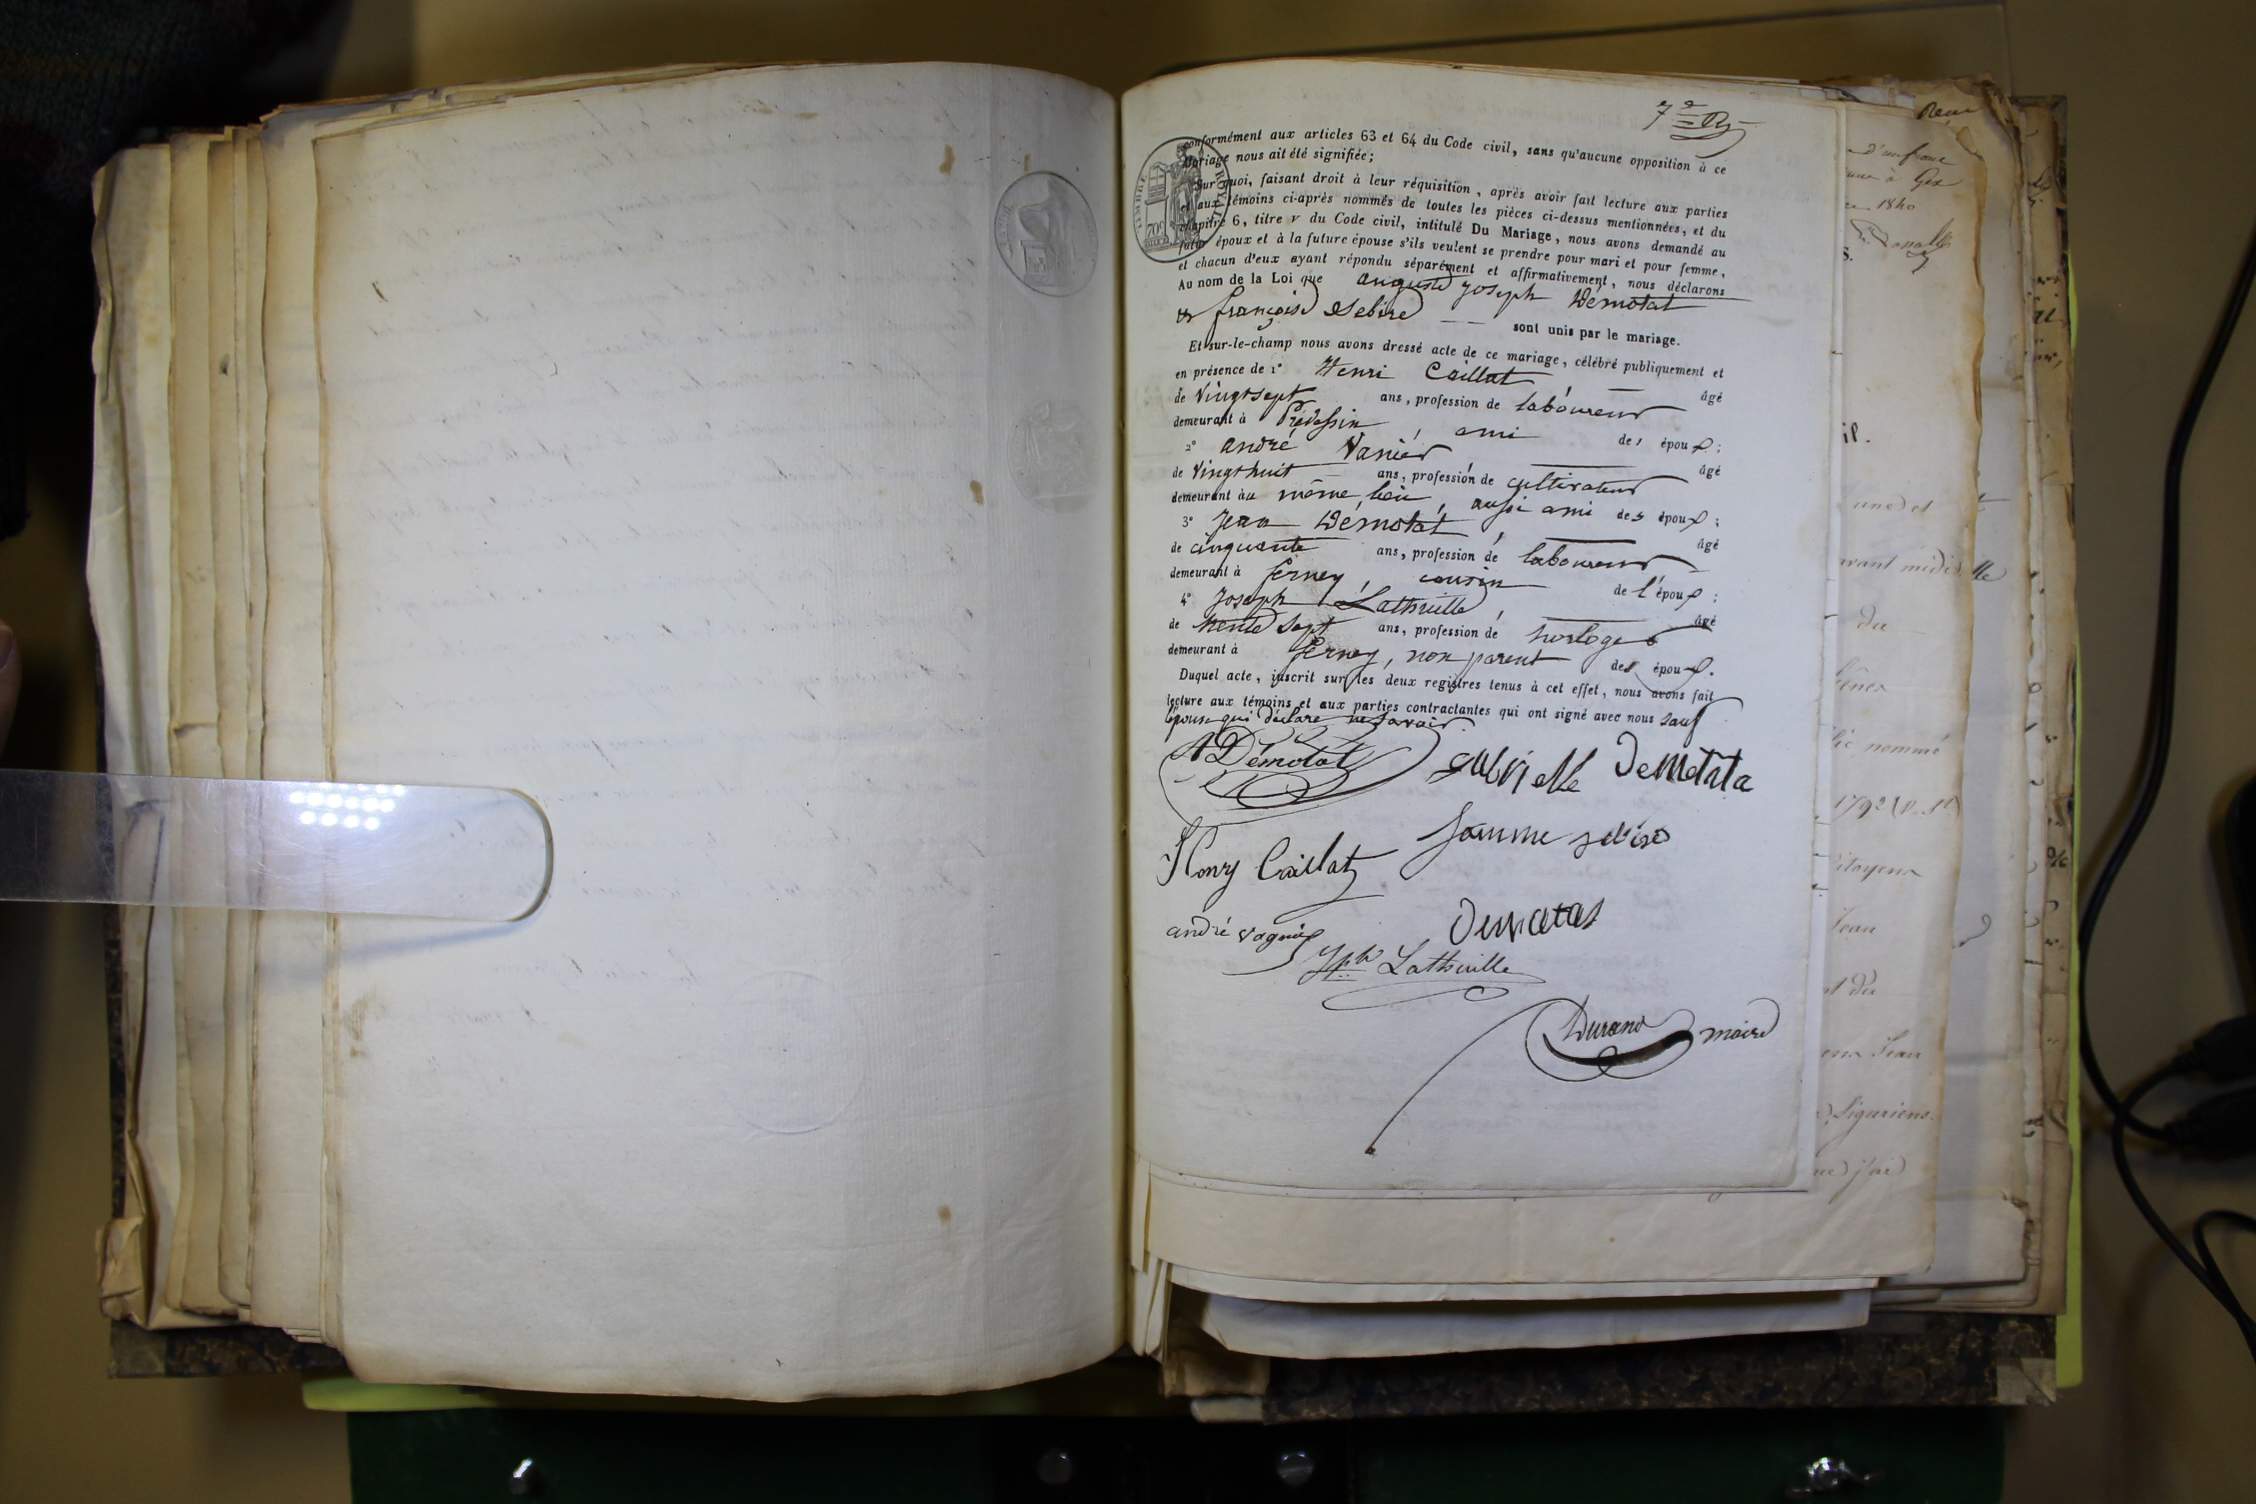 7e
conformément aux articles 63 et 64 du Code civil, sans qu'aucune opposition à ce
Mariage nous ait été signifiée;
Sur quoi, faisant droit à leur réquisition, après avoir fait lecture aux parties
et aux témoins ci-après nommés de toutes les pièces ci-dessus mentionnées, et du
chapitre 6, titre v du Code civil, intitulé Du Mariage, nous avons demandé au
futur époux et à la future épouse s'ils veulent se prendre pour mari et pour femme,
et chacun d'eux ayant répondu séparément et affirmativement, nous déclarons
Au nom de la Loi que auguste joseph Démotat
et françoise Sebire sont unis par le mariage.
Et sur-le-champ nous avons dressé acte de ce mariage, célébré publiquement et
en présence de 1° Henri Caillat âgé
de Vingt sept ans, profession de laboureur
demeurant à Prévessin, ami des époux;
2° andré Vanier, âgé
de Vingt huit ans, profession de cultivateur
demeurant au même lieu, aussi ami des époux;
3° Jean Démotat, âgé
de cinquante ans, profession de laboureur
demeurant à ferney, cousin de l'époux;
4° Joseph Lathuille, âgé
de trente sept ans, profession de horloger
demeurant à ferney, non parent des époux.
Duquel acte, inscrit sur les deux registres tenus à cet effet, nous avons fait
lecture aux témoins et aux parties contractantes qui ont signé avec nous sauf
l'épouse qui déclare ne savoir
A Démotat gabrielle Demotata
Henry Caillat
andré vagnié
Jph Lathuille
Durand maire
TIMBRE ROYAL
70c
d'un franc
à Gex
1840
il.
avant midi
du
nommé
1792
citoyens
Jean
Jean
Liguriens